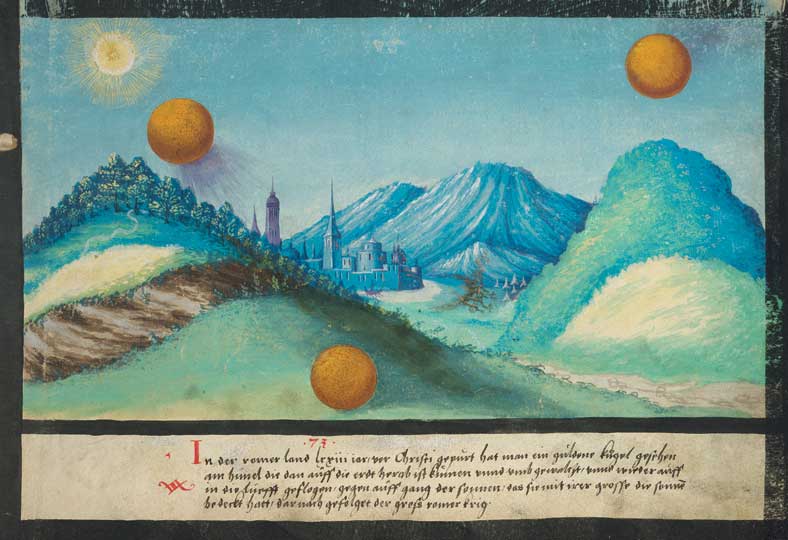 · 73 ·
In der romer land lxxiii iar vor Christi gepurt hat man ein guldene kugel gesehen
am himel die dan auff die erdt herab ist kumen vnnd vmb gewaltzt vnnd wider auff
in die lufft geflogen gegen auff gang der sonnen das sie mit irer grosse die sonne
bedeckt hatt dar nach gefolget der gross romer krig